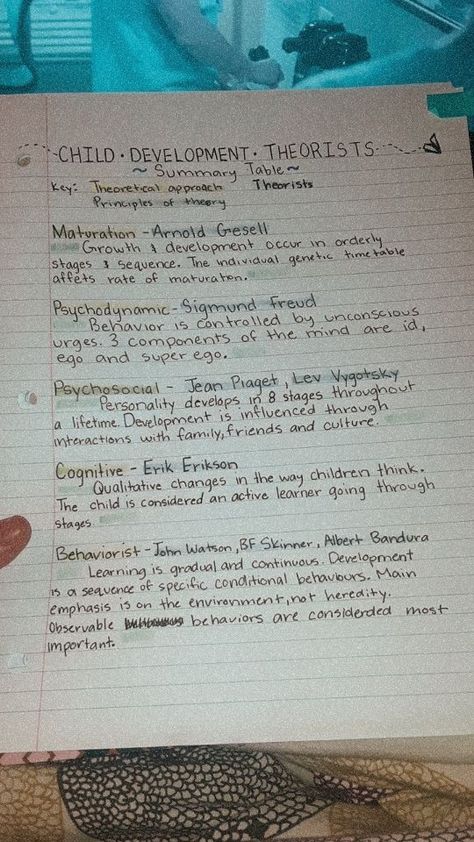 CHILD · DEVELOPMENT · THEORISTS
~ Summary Table ~
Key: Theoretical approach Theorists
Principles of theory
Maturation - Arnold Gesell
Growth & development occur in orderly
stages & sequence. The individual genetic timetable
affets rate of maturation.
Psychodynamic - Sigmund Freud
Behavior is controlled by unconscious
urges. 3 components of the mind are id,
ego and super ego.
Psychosocial - Jean Piaget, Lev Vygotsky
Personality develops in 8 stages throughout
a lifetime. Development is influenced through
interactions with family, friends and culture.
Cognitive - Erik Erikson
Qualitative changes in the way children think.
The child is considered an active learner going through
stages
Behaviorist - John Watson, BF Skinner, Albert Bandura
Learning is gradual and continuous. Development
is a sequence of specific conditional behaviours. Main
emphasis is on the environment, not heredity.
Observable behaviors are considerded most
important.